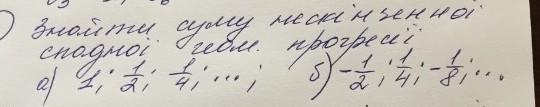 ) Знайти суму нескінченної
спадної геом. прогресії
а) 1; 1/2; 1/4; ...; б) -1/2; 1/4; -1/8; ...